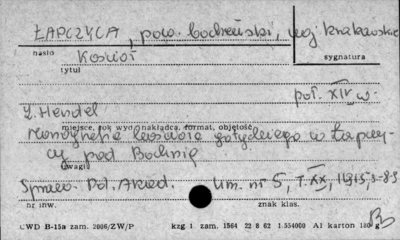 ŁAPCZYCA, pow. bocheński, woj. krakowskie
hasło
Kościół
sygnatura
tytuł
poł. XIV w.
Z. Hendel
miejsce, rok wyd., nakładca, format, objętość
Monografia kościoła gotyckiego w Łapczy-
cy pod Bochnią
uwagi
Spraw. Pol. Akad. Um. nr 5, T. XX, 1915, s.
nr inw.
znak klas.
CWD B-15a zam. 2006/ZW/P
kzg 1 zam. 1564 22 8 62 1.554000 A1 karton 180 g